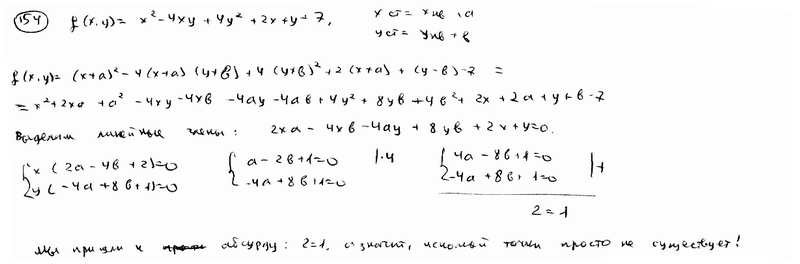 154 f(x,y) = x² - 4xy + 4y² + 2x + y - 7, xст = xнв + a
yст = yнв + в
f(x,y) = (x+a)² - 4(x+a)(y+в) + 4(y+в)² + 2(x+a) + (y-в) - 7 =
= x² + 2xa + a² - 4xy - 4xв - 4ay - 4aв + 4y² + 8yв + 4в² + 2x + 2a + y + в - 7
Выделим линейные члены: 2xa - 4xв - 4ay + 8yв + 2x + y = 0.
{ x (2a - 4в + 2) = 0 { a - 2в + 1 = 0 |·4 { 4a - 8в + 1 = 0 | +
y (-4a + 8в + 1) = 0 -4a + 8в + 1 = 0 -4a + 8в + 1 = 0
2 = 1
Мы пришли к абсурду: 2=1, а значит, искомой точки просто не существует!